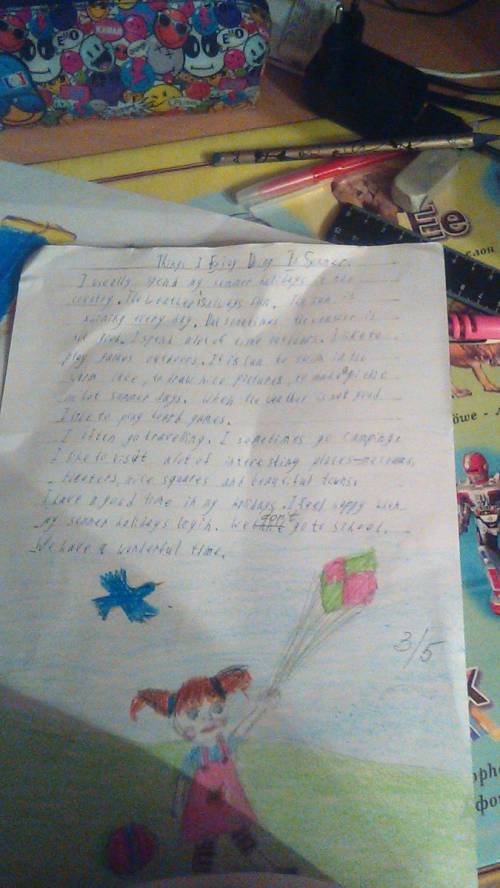 Things I Enjoy Doing In Summer.
I usually spend my summer holidays in the
country. The weather is always fun. The sun is
shining every day. But sometimes the weather is
not fine. I spend a lot of time outdoors. I like to
play games outdoors. It is fun to swim in the
warm lake, to draw nice pictures, to make a picnic
on hot summer days. When the weather is not good
I like to play board games.
I often go travelling. I sometimes go camping.
I like to visit a lot of interesting places-museums,
theaters, nice squares and beautiful towns.
I have a good time in my holidays. I feel happy when
my summer holidays begin. We don't go to school.
We have a wonderful time.
3/5